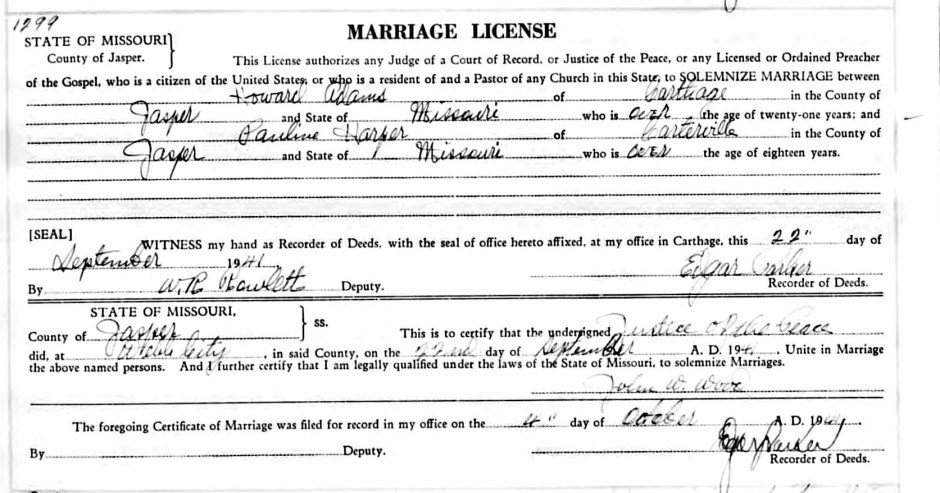 1299
MARRIAGE LICENSE
STATE OF MISSOURI
County of Jasper.
This License authorizes any Judge of a Court of Record, or Justice of the Peace, or any Licensed or Ordained Preacher
of the Gospel, who is a citizen of the United States, or who is a resident of and a Pastor of any Church in this State, to SOLEMNIZE MARRIAGE between
Howard Adams of Carthage in the County of
Jasper and State of Missouri who is over the age of twenty-one years; and
Pauline Harper of Carterville in the County of
Jasper and State of Missouri who is over the age of eighteen years.
[SEAL]
WITNESS my hand as Recorder of Deeds, with the seal of office hereto affixed, at my office in Carthage, this 22" day of
September 1941. Edgar Parker
By W.R. Rowlett Deputy. Recorder of Deeds.
STATE OF MISSOURI,
County of Jasper ss. This is to certify that the undersigned Justice of the Peace
did, at Webb City, in said County, on the 22nd day of September A. D. 1941, Unite in Marriage
the above named persons. And I further certify that I am legally qualified under the laws of the State of Missouri, to solemnize Marriages.
John W. Wood
The foregoing Certificate of Marriage was filed for record in my office on the 4" day of October A. D. 1941
Edgar Parker
By Deputy. Recorder of Deeds.